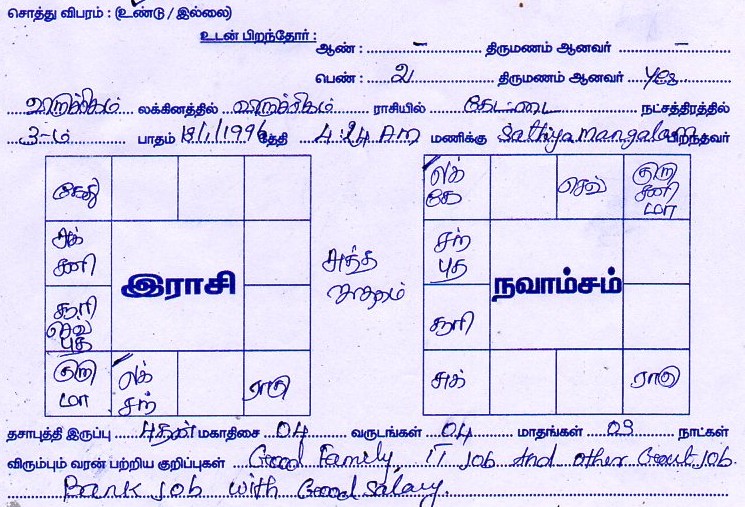 சொத்து விபரம் : (உண்டு / இல்லை)
உடன் பிறந்தோர் :
ஆண் : – திருமணம் ஆனவர் –
பெண் : 2 திருமணம் ஆனவர் Yes
விருச்சிகம் லக்கினத்தில் விருச்சிகம் ராசியில் கேட்டை நட்சத்திரத்தில்
3-ம் பாதம் 18/1/1996 தேதி 4:24 AM மணிக்கு Sathiyamangalam பிறந்தவர்
கேது
சுக்
சனி
இராசி
சூரி
செவ்
புத
குரு
மா
லக்
சந்
ராகு
லக்
கே
செவ்
குரு
சனி
மா
சந்
புத
நவாம்சம்
சூரி
சுக்
ராகு
தசாபுத்தி இருப்பு புதன் மகாதிசை 04 வருடங்கள் 04 மாதங்கள் 03 நாட்கள்
விரும்பும் வரன் பற்றிய குறிப்புகள் Good Family IT Job and other Govt Job.
Bank Job with Good Salary.